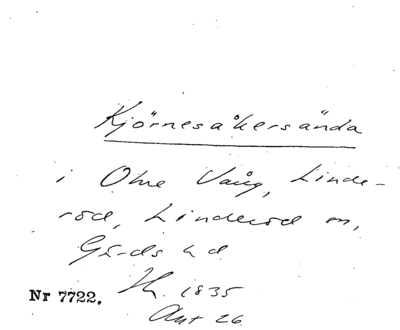 Kjörnesåkersända
i Ohre Vång, Linde-
röd, Linderöd sn,
Gärds hd
Nr 7722. Sk. 1835
Akt 26